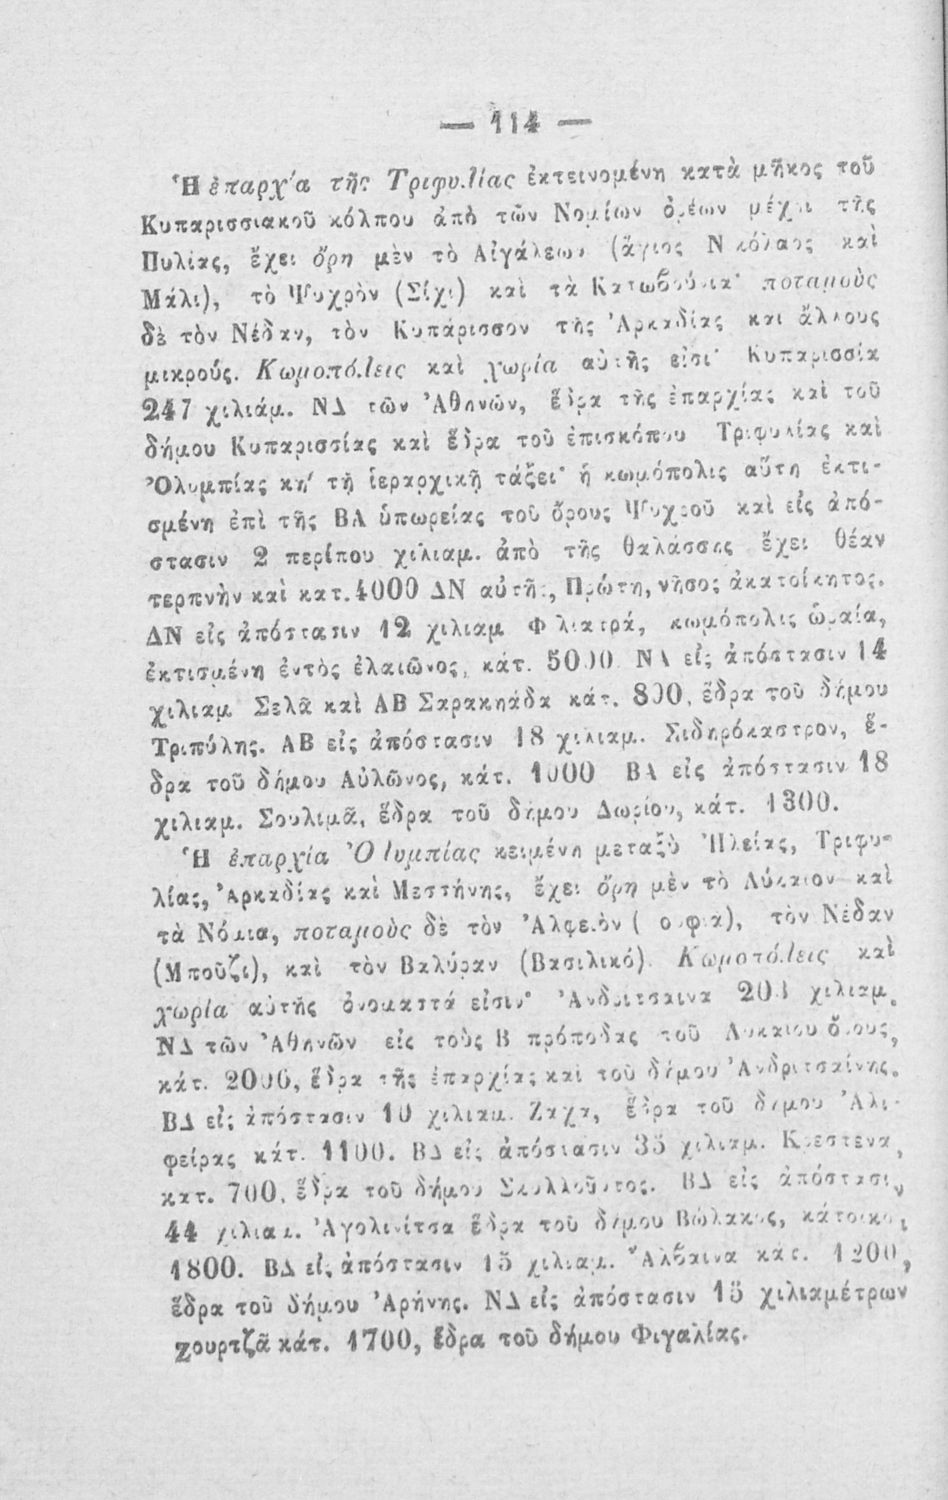 — 114 —
Ἡ ἐπαρχία τῆς Τριφυλίας ἐκτεινομένη κατὰ μῆκος τοῦ
Κυπαρισσιακοῦ κόλπου ἀπὸ τῶν Νομίων ὀρέων μέχρι τῆς
Πυλίας, ἔχει ὄρη μὲν τὸ Αἰγάλεων (ἅγιος Νικόλαος καὶ
Μάλι), τὸ Ψυχρὸν (Σίχι) καὶ τὰ Κατωβούνια· ποταμοὺς
δὲ τὸν Νέδαν, τὸν Κυπάρισσον τῆς Ἀρκαδίας καὶ ἄλλους
μικρούς. Κωμοπόλεις καὶ χωρία αὐτῆς εἰσι· Κυπαρισσία
247 χιλιάμ. ΝΔ τῶν Ἀθηνῶν, ἕδρα τῆς ἐπαρχίας καὶ τοῦ
δήμου Κυπαρισσίας καὶ ἕδρα τοῦ ἐπισκόπου Τριφυλίας καὶ
Ὀλυμπίας κη′ τῇ ἱεραρχικῇ τάξει· ἡ κωμόπολις αὕτη ἐκτι-
σμένη ἐπὶ τῆς ΒΑ ὑπωρείας τοῦ ὄρους Ψυχροῦ καὶ εἰς ἀπό-
στασιν 2 περίπου χιλιαμ. ἀπὸ τῆς θαλάσσης ἔχει θέαν
τερπνὴν καὶ κατ. 4000 ΔΝ αὐτῆς, Πρώτη, νῆσος ἀκατοίκητος.
ΔΝ εἰς ἀπόστασιν 12 χιλιαμ Φιλιατρά, κωμόπολις ὡραία,
ἐκτισμένη ἐντὸς ἐλαιῶνος, κάτ. 5000 ΝΑ εἰς ἀπόστασιν 14
χιλιαμ Σελᾶ καὶ ΑΒ Σαρακηάδα κάτ. 800, ἕδρα τοῦ δήμου
Τριπύλης. ΑΒ εἰς ἀπόστασιν 18 χιλιαμ. Σιδηρόκαστρον, ἕ-
δρα τοῦ δήμου Αὐλῶνος, κάτ. 1000 ΒΑ εἰς ἀπόστασιν 18
χιλιαμ. Σουλιμᾶ, ἕδρα τοῦ δήμου Δωρίου, κάτ. 1300.
Ἡ ἐπαρχία Ὀλυμπίας κειμένη μεταξὺ Ἠλείας, Τριφυ-
λίας, Ἀρκαδίας καὶ Μεσσήνης, ἔχει ὄρη μὲν τὸ Λύκαιον καὶ
τὰ Νόμια, ποταμοὺς δὲ τὸν Ἀλφειὸν ( ουφιὰ), τὸν Νέδαν
(Μπούζι), καὶ τὸν Βαλύραν (Βασιλικό) Κωμοπόλεις καὶ
χωρία αὐτῆς ὀνομαστά εἰσιν· Ἀνδρίτσαινα 203 χιλιαμ.
ΝΔ τῶν Ἀθηνῶν εἰς τοὺς Β πρόποδας τοῦ Λυκαίου ὄρους,
κάτ. 2000, ἕδρα τῆς ἐπαρχίας καὶ τοῦ δήμου Ἀνδριτσαίνης.
ΒΔ εἰς ἀπόστασιν 10 χιλιαμ. Ζαχα, ἕδρα τοῦ δήμου Ἀλι-
φείρας κάτ. 1100. ΒΔ εἰς ἀπόστασιν 35 χιλιαμ. Κρέστενα,
κατ. 700, ἕδρα τοῦ δήμου Σκυλλοῦντος. ΒΔ εἰς ἀπόστασιν
44 χιλιαμ. Ἀγολινίτσα ἕδρα τοῦ δήμου Βώλακος, κάτοικοι
1800. ΒΔ εἰς ἀπόστασιν 15 χιλιαμ. Ἄλβαινα κάτ. 1200,
ἕδρα τοῦ δήμου Ἀρήνης. ΝΔ εἰς ἀπόστασιν 15 χιλιαμέτρων
Ζουρτζᾶ κάτ. 1700, ἕδρα τοῦ δήμου Φιγαλίας.